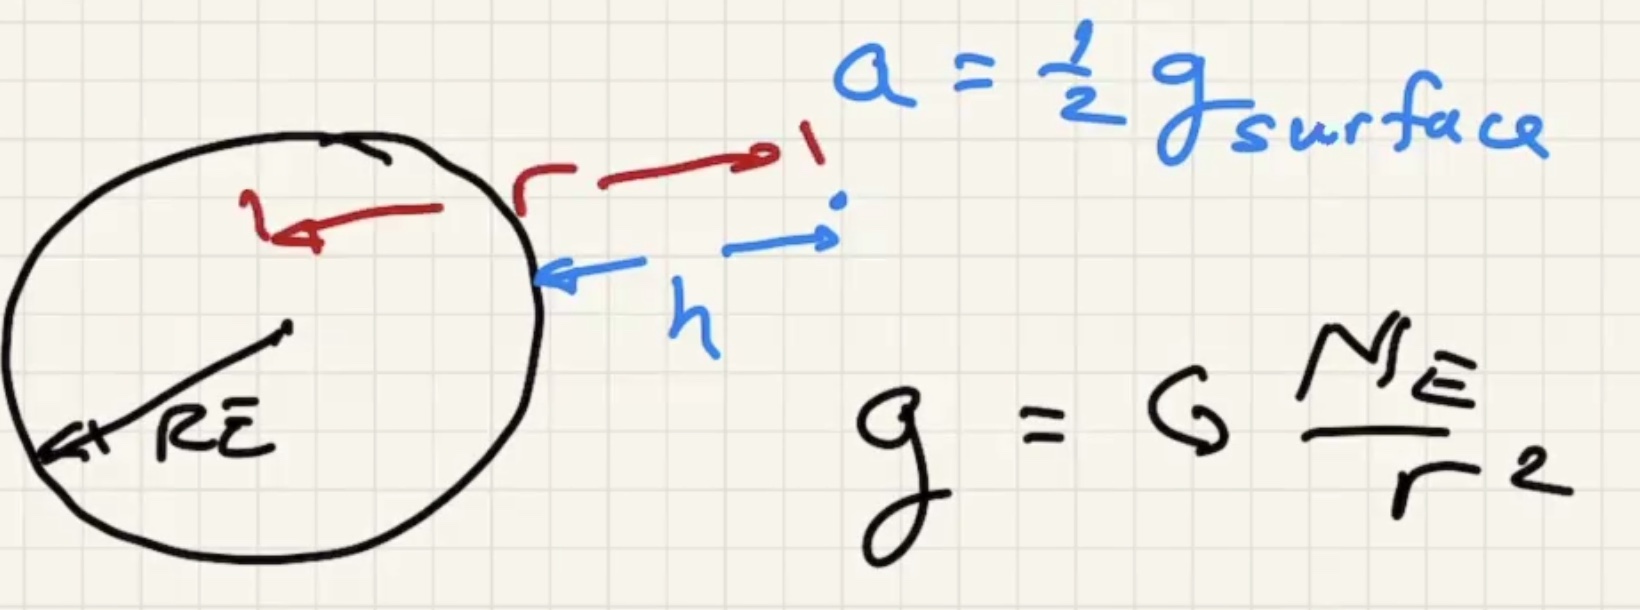 a = 1/2 g surface
r
h
RE
g = G ME/r²